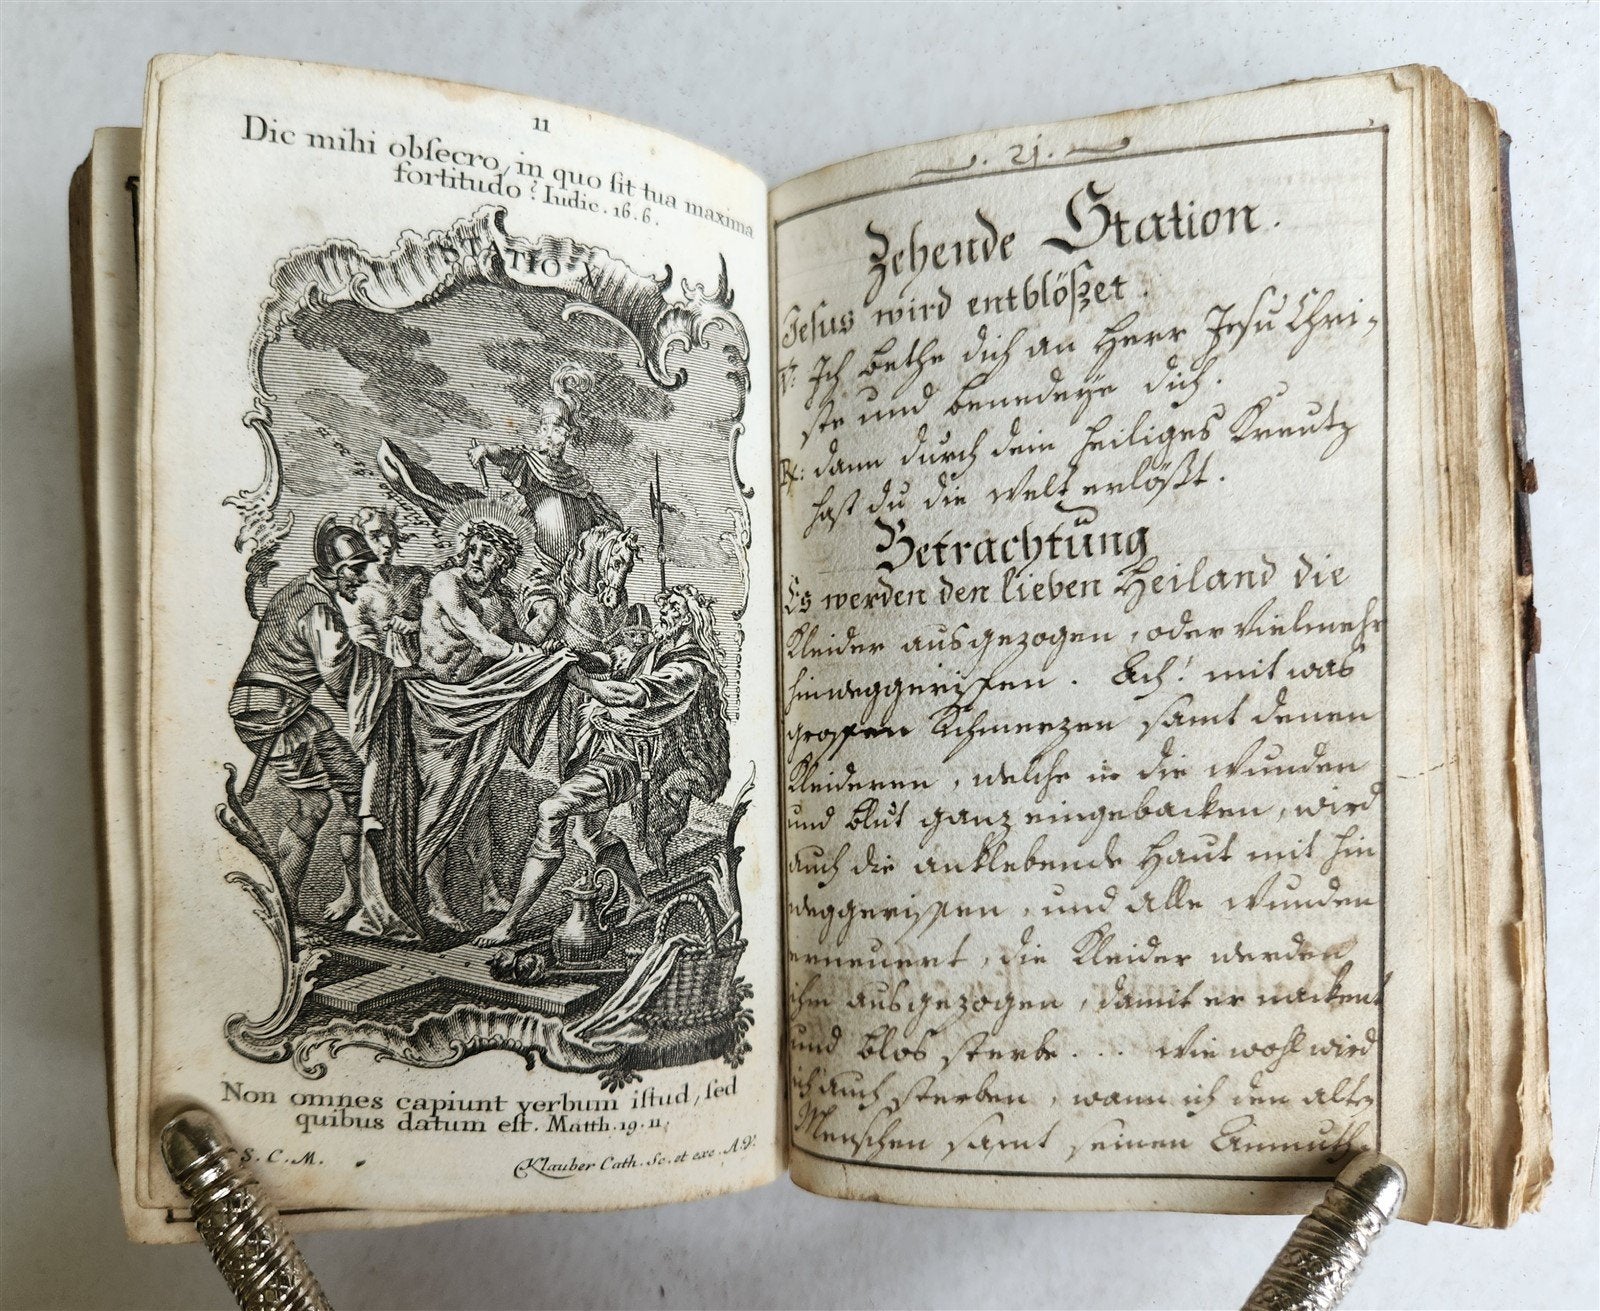 11
Dic mihi obſecro, in quo ſit tua maxima
fortitudo? Iudic. 16. 6.
STATIO X
Non omnes capiunt verbum iſtud, ſed
quibus datum eſt. Matth. 19. 11.
S. C. M.
Klauber Cath. Sc. et exc. A.V.
. 21.
Zehende Station.
Jesus wird entblößet.
V: Ich bethe dich an Herr Jesu Chri-
ste und benedeÿe dich.
R: dann durch dein heiliges Kreutz
hast du die welt erlößt.
Betrachtung
Es werden den lieben Heiland die
Kleider ausgezogen, oder vielmehr
hinweggerissen. Ach! mit was
grossen Schmerzen samt denen
Kleideren, welche in die wunden
und blut ganz eingebacken, wird
auch die anklebende Haut mit hin
weggerissen, und alle wunden
erneuert, die Kleider werden
ihm ausgezogen, damit er nackent
und blos sterbe... wie wohl wird
ich auch sterben, wann ich den alten
Menschen samt seinen Anmuth-